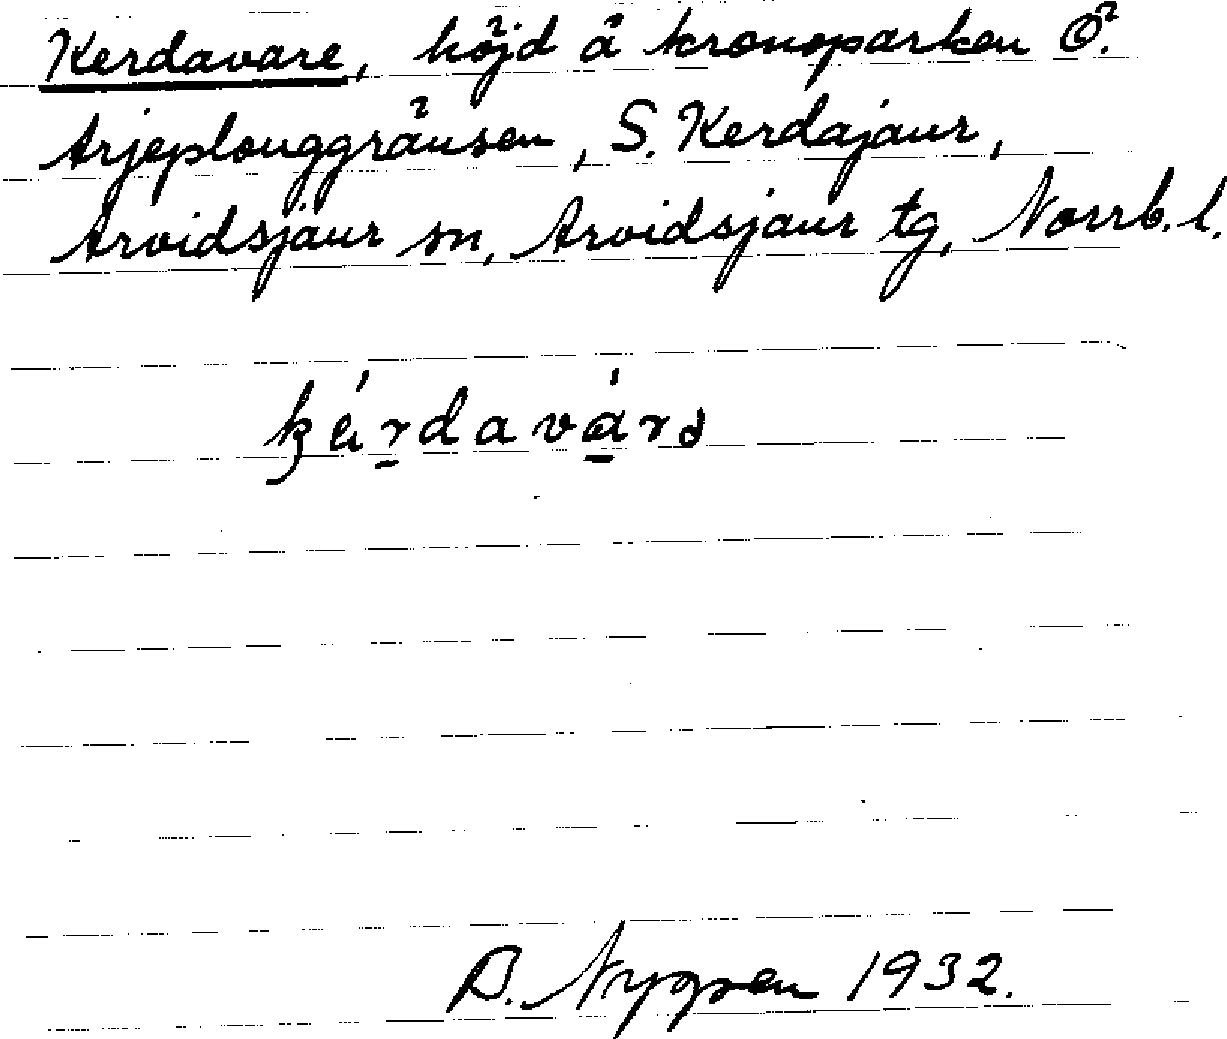 Kerdavare, höjd å kronoparken Ö.
Arjeplouggränsen, S. Kerdajaur,
Arvidsjaur sn, Arvidsjaur tg, Norrb. l.
B. Nygren 1932.